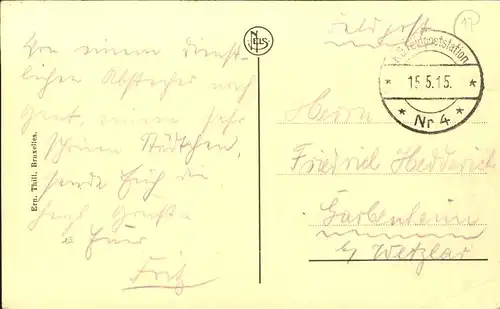 Von einem dienst-
lichen Abstecher nach
Gent, einem sehr
schönen Städtchen,
sende Euch die
herzl. Grüße
Euer
Fritz
Ern. Thill, Bruxelles.
NELS
Feldpost
K.D. Feldpoststation
* 15.5.15. *
* Nr 4 *
Herrn
Friedrich Hedderich
Garbenheim
b/ Wetzlar